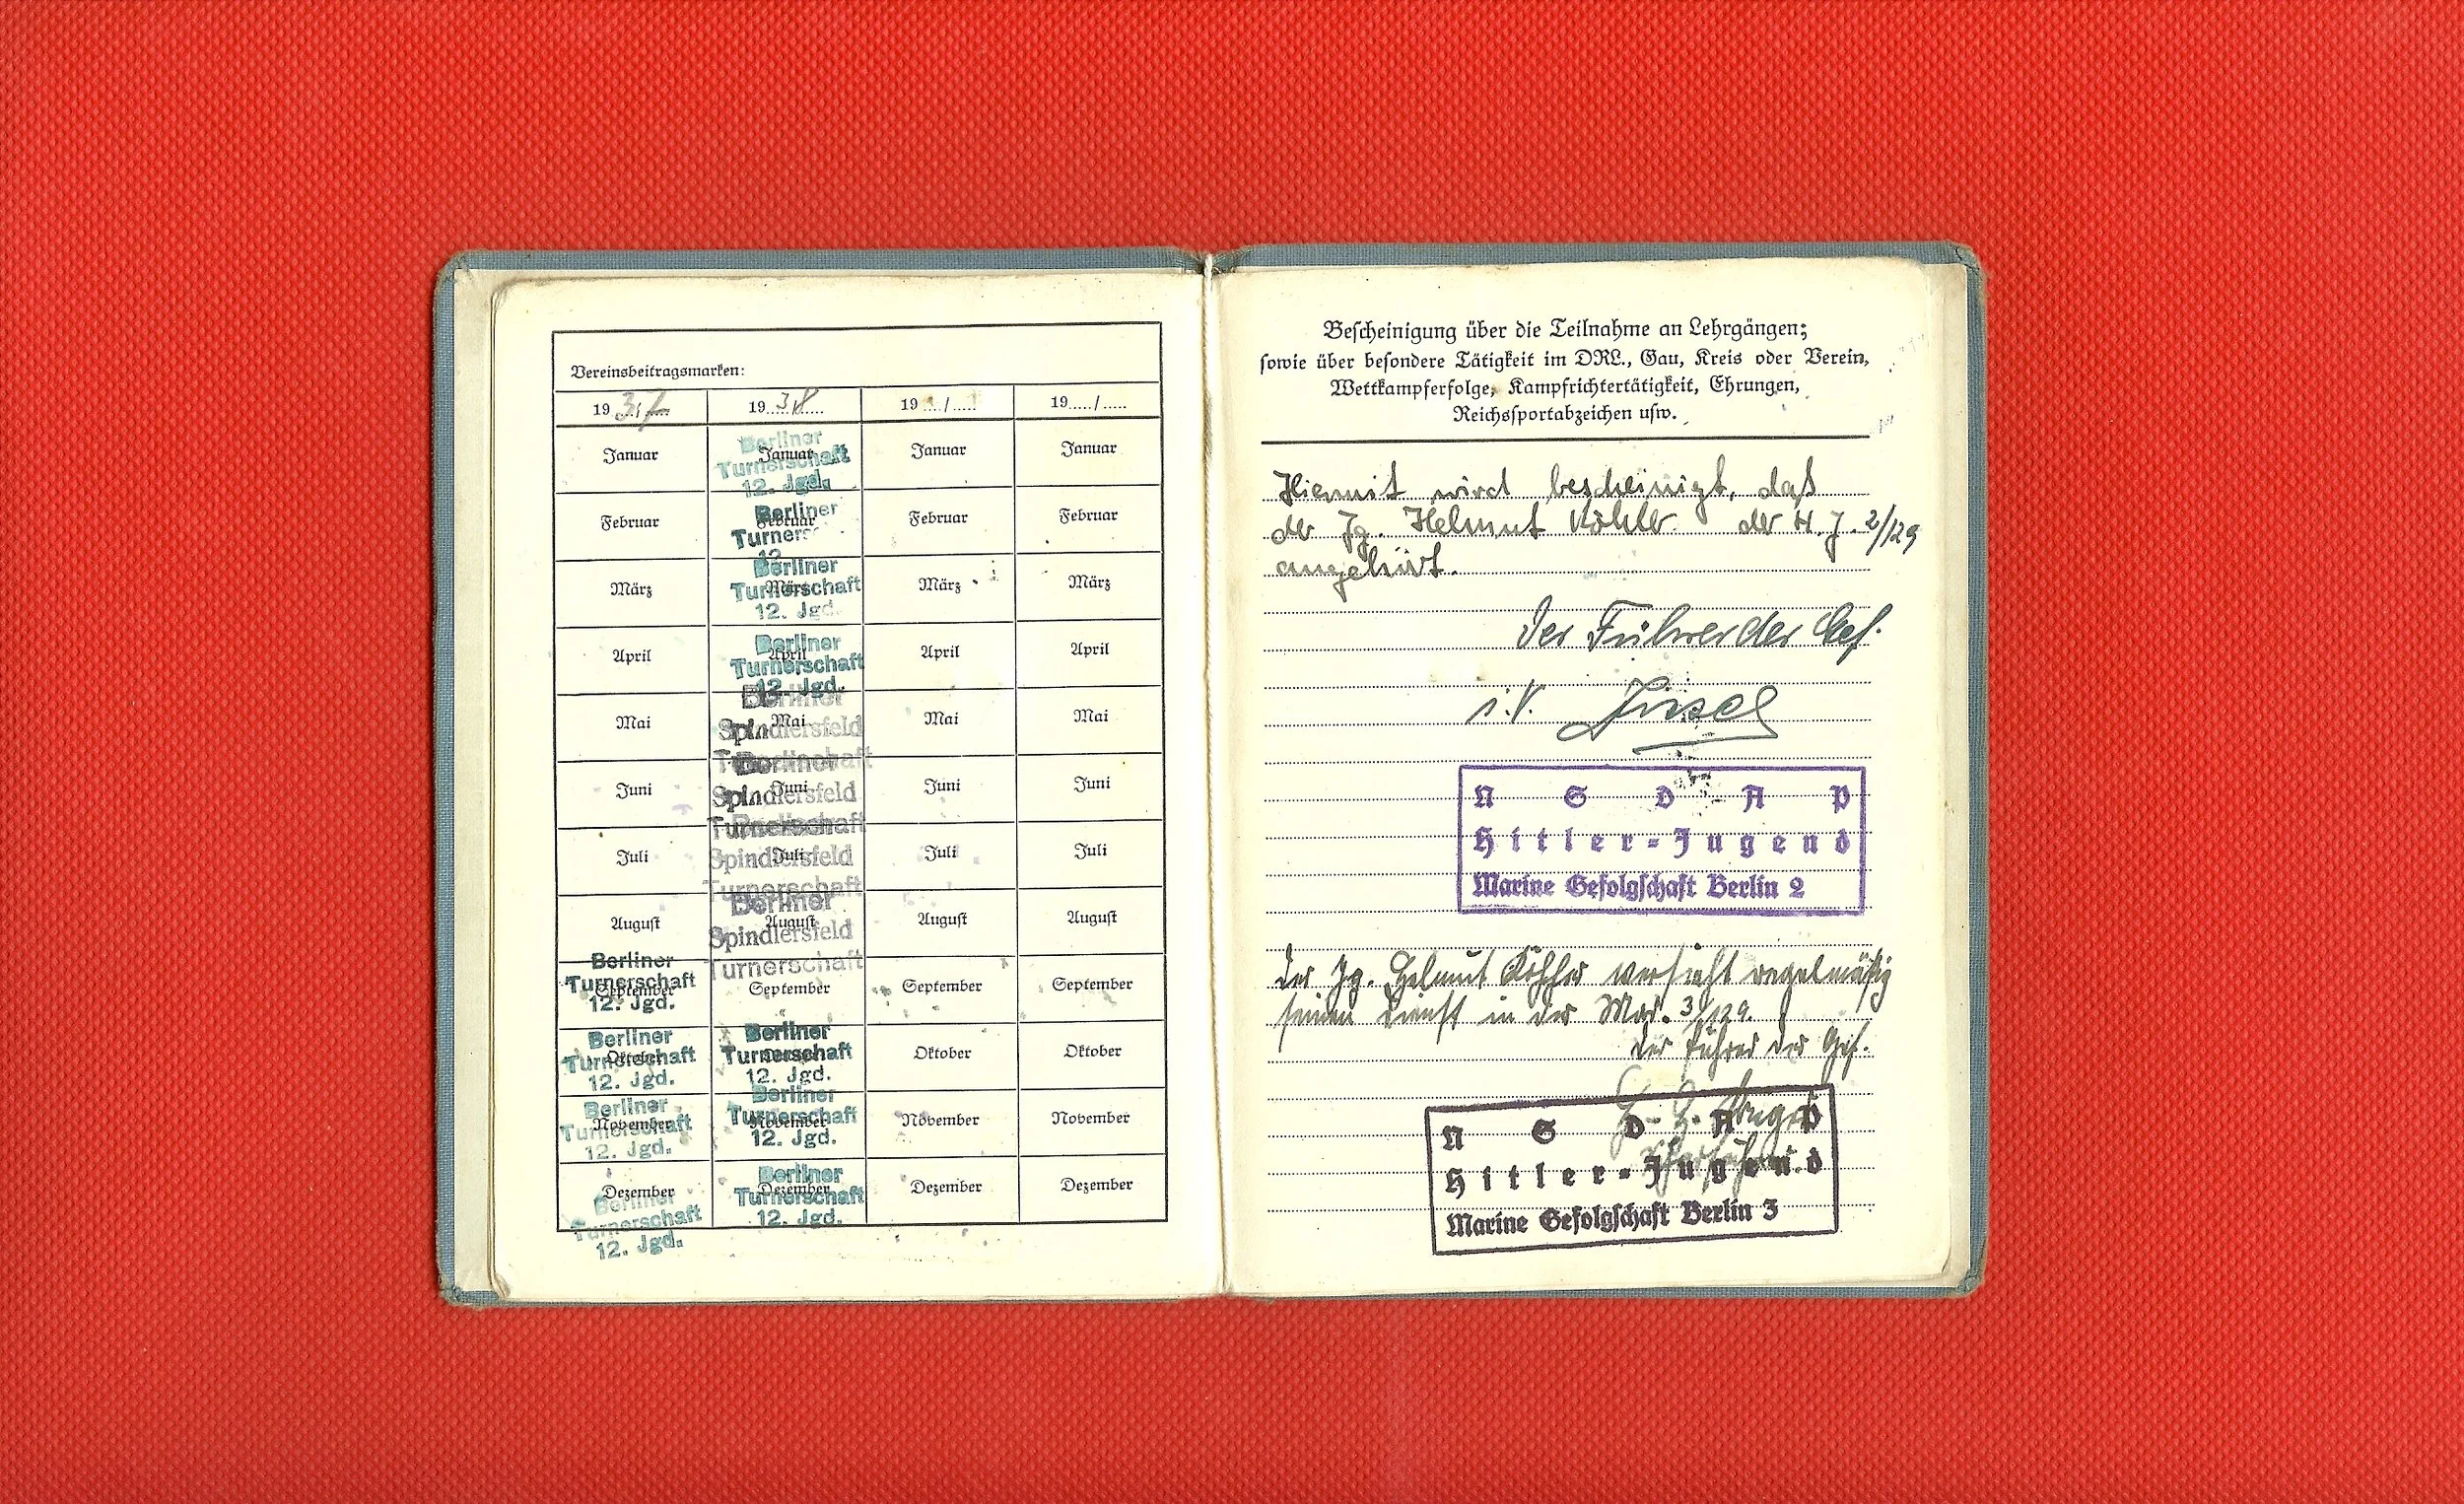 Vereinsbeitragsmarken:
1937/..... 1938..... 19...../..... 19...../.....
Januar Januar Januar Januar
Berliner
Turnerschaft
12. Jgd.
Februar Februar Februar Februar
Berliner
Turners
12
März März März März
Berliner
Turnerschaft
12. Jgd.
April April April April
Berliner
Turnerschaft
12. Jgd.
Mai Mai Mai Mai
Berliner
Spindlersfeld
Turnerschaft
Juni Juni Juni Juni
Berliner
Spindlersfeld
Turnerschaft
Juli Juli Juli Juli
Berliner
Spindlersfeld
Turnerschaft
August August August August
Berliner
Spindlersfeld
Turnerschaft
September September September September
Berliner
Turnerschaft
12. Jgd.
Oktober Oktober Oktober
Berliner Berliner
Turnerschaft Turnerschaft
12. Jgd. 12. Jgd.
November November November November
Berliner Berliner
Turnerschaft Turnerschaft
12. Jgd. 12. Jgd.
Dezember Dezember Dezember Dezember
Berliner Berliner
Turnerschaft Turnerschaft
12. Jgd. 12. Jgd.
Bescheinigung über die Teilnahme an Lehrgängen;
sowie über besondere Tätigkeit im DRL., Gau, Kreis oder Verein,
Wettkampferfolge, Kampfrichtertätigkeit, Ehrungen,
Reichssportabzeichen usw.
Hiermit wird bescheinigt, daß
der Jg. Helmut Köhler der H.J. 2/129
angehört.
Der Führer der Gef.
i.V.
NSDAP
Hitler-Jugend
Marine Gefolgschaft Berlin 2
Der Jg. Helmut Köhler versieht regelmäßig
seinen Dienst in der Mar. 3/129.
Der Führer der Gef.
NSDAP
Hitler-Jugend
Marine Gefolgschaft Berlin 3